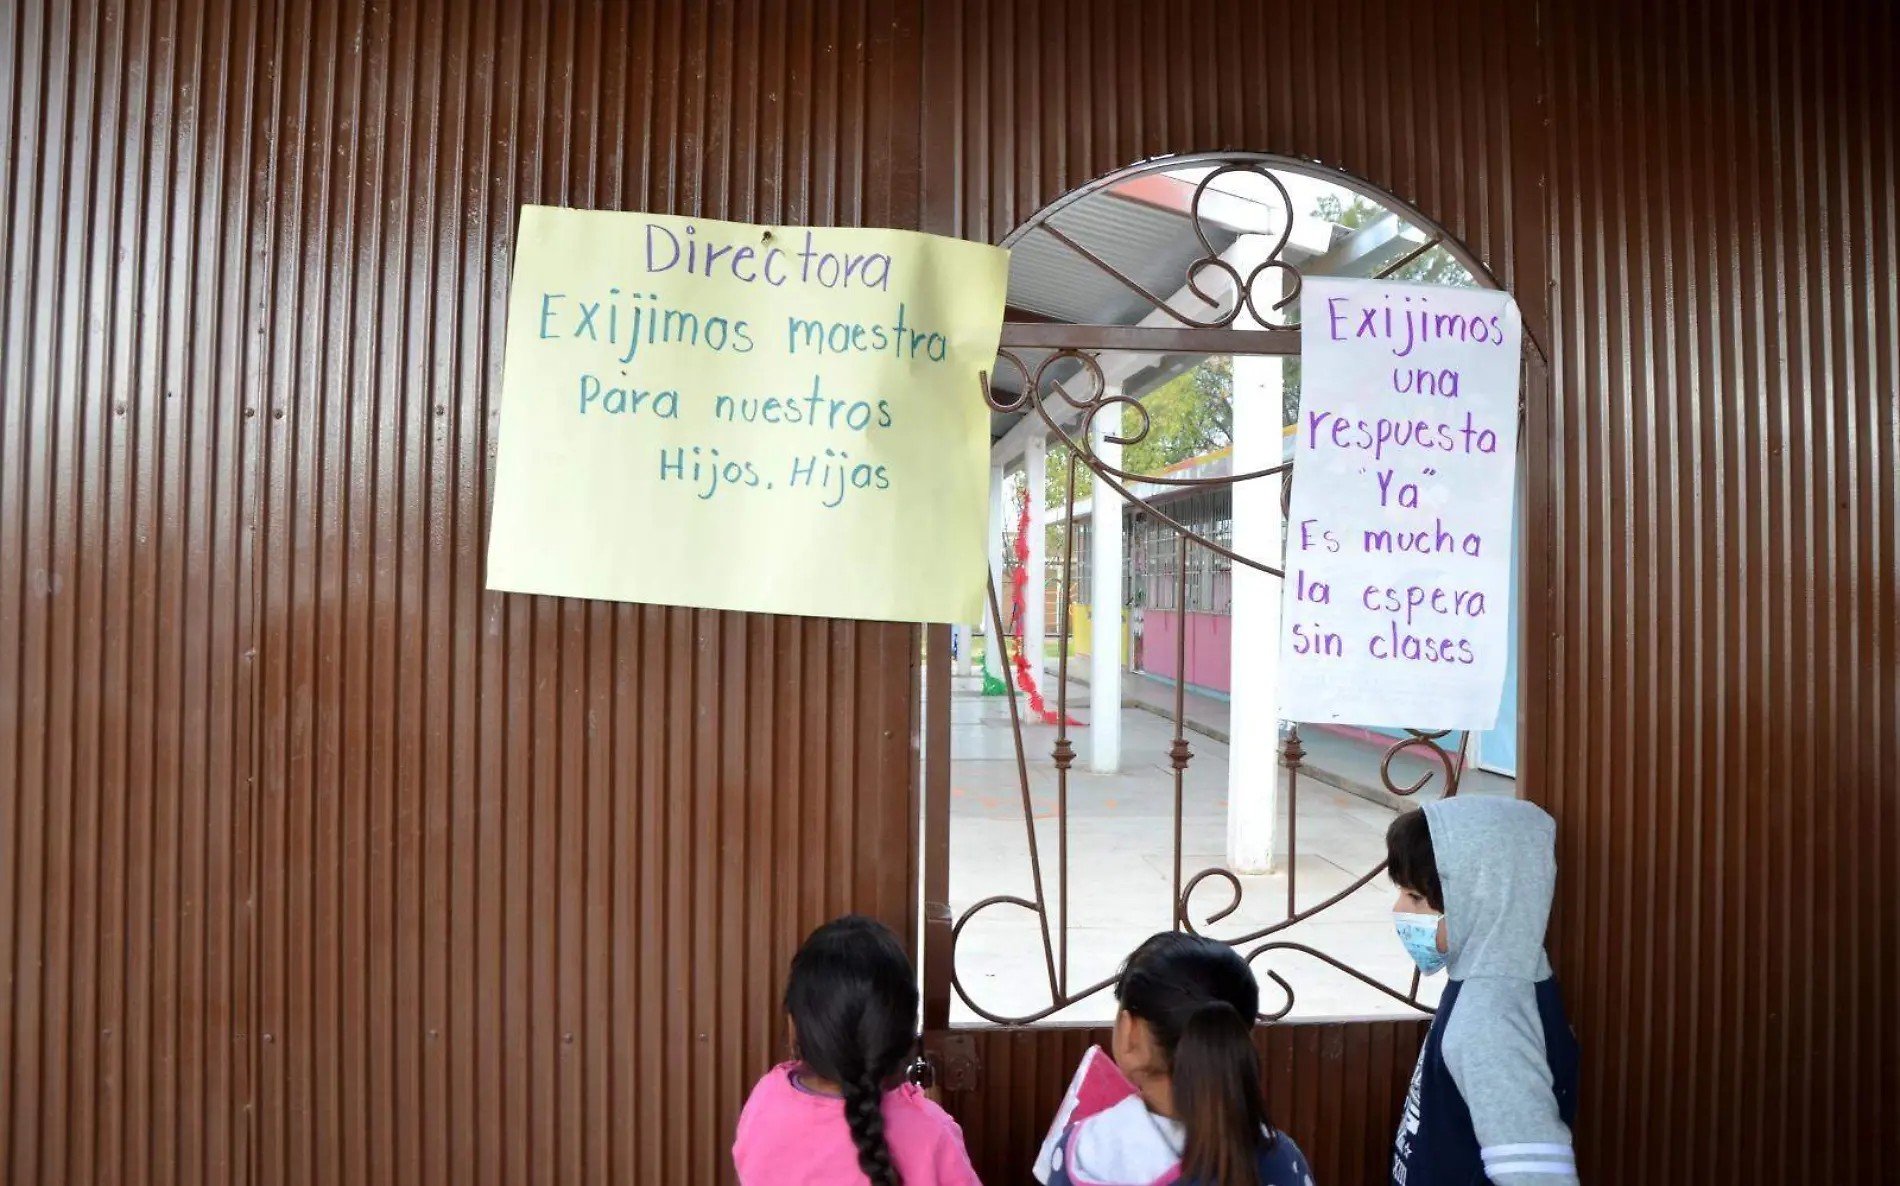 Directora
Exijimos maestra
Para nuestros
Hijos, Hijas
Exijimos
una
respuesta
"Ya"
Es mucha
la espera
sin clases